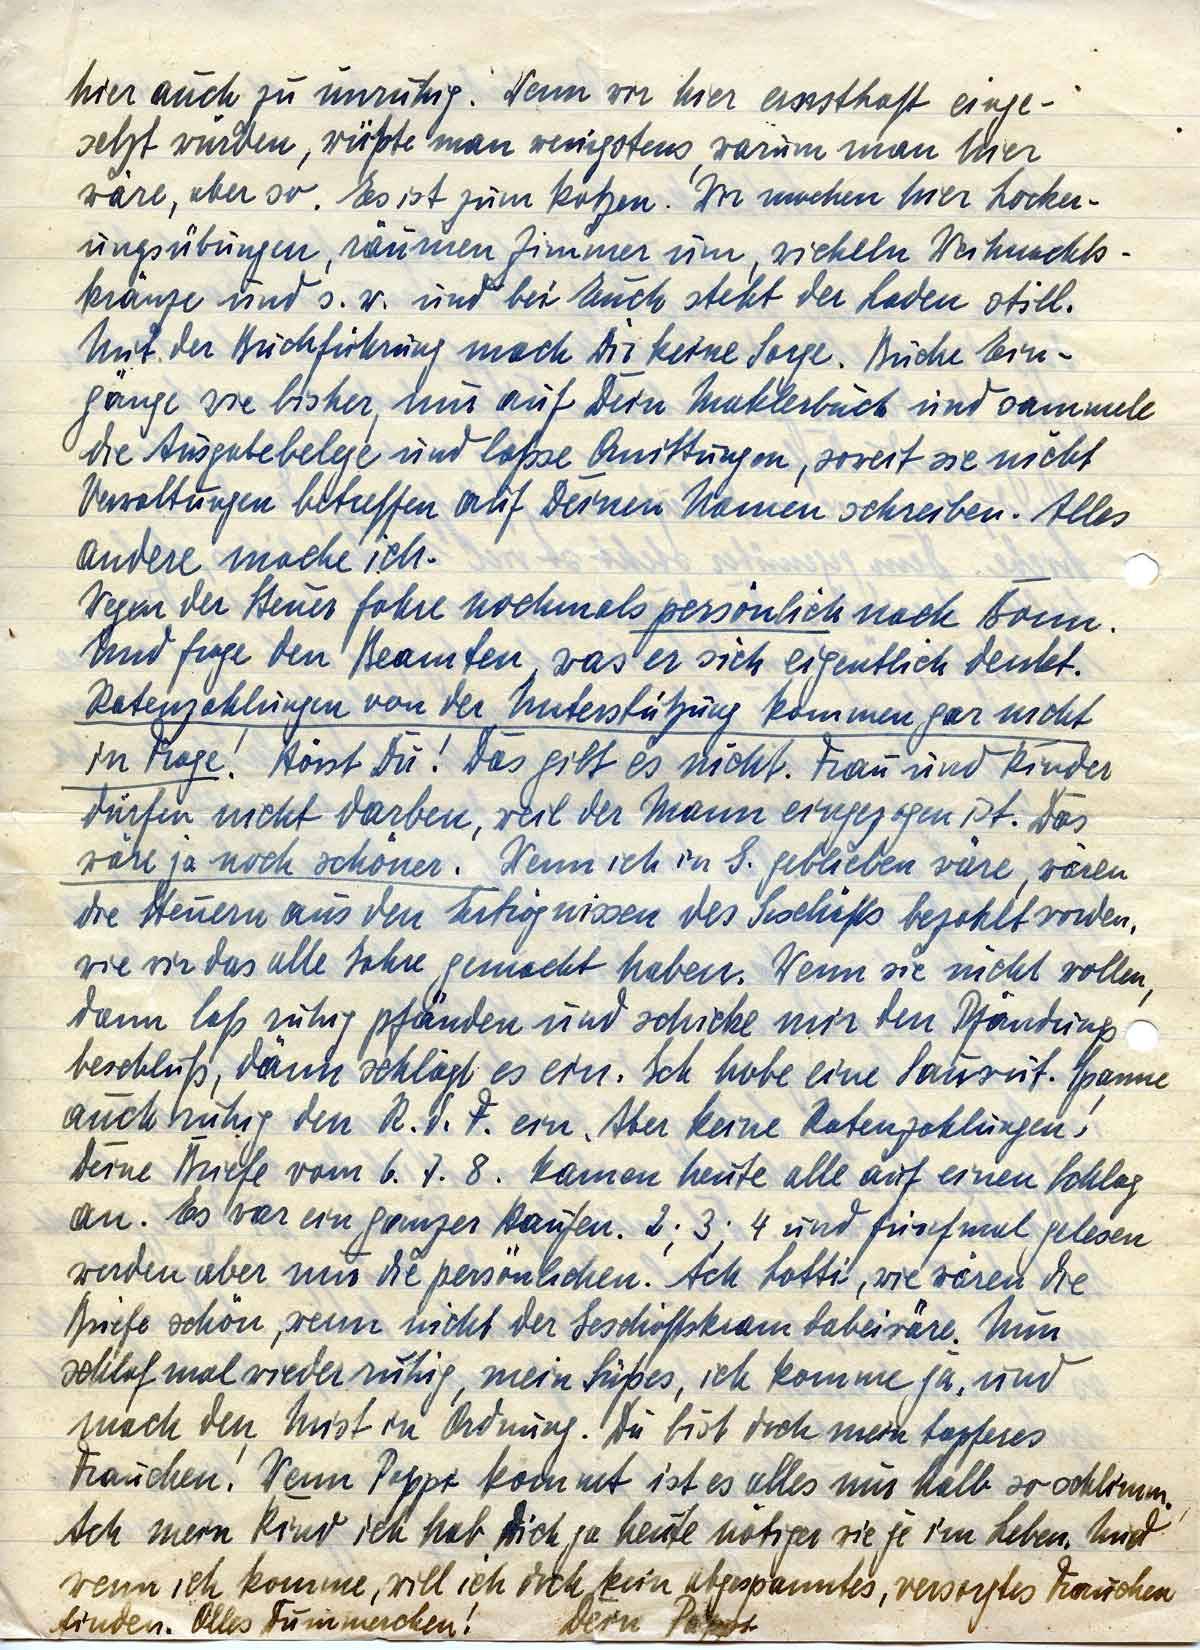 hier auch zu unruhig. Wenn wir hier ernsthaft einge-
setzt würden, wüßte man wenigstens, warum man hier
wäre, aber so. Es ist zum kotzen. Wir machen hier Locker-
ungsübungen, räumen Zimmer um, wickeln Weihnachts-
kränze und s. w. und bei Euch steht der Laden still.
Mit der Buchführung mach Dir keine Sorge. Buche Ein-
gänge wie bisher, nur auf Dein Maklerbuch und sammele
die Ausgabebelege und lasse Quittungen, soweit sie nicht
Verwaltungen betreffen auf Deinen Namen schreiben. Alles
andere mache ich.
Wegen der Steuer fahre nochmals persönlich nach Bonn.
Und frage den Beamten, was er sich eigentlich denkt.
Ratenzahlungen von der Unterstützung kommen gar nicht
in Frage! Hörst Du! Das gibt es nicht. Frau und Kinder
dürfen nicht darben, weil der Mann eingezogen ist. Das
wäre ja noch schöner. Wenn ich in G. geblieben wäre, wären
die Steuern aus den Erträgnissen des Geschäfts bezahlt worden,
wie wir das alle Jahre gemacht haben. Wenn sie nicht wollen,
dann laß ruhig pfänden und schicke mir den Pfändungs
beschluß, dann schlägt es ein. Ich habe eine Sauwut. Spanne
auch ruhig den R. d. F. ein. Aber keine Ratenzahlungen!
Deine Briefe vom 6. 7. 8. kamen heute alle auf einen Schlag
an. Es war ein ganzer Haufen. 2; 3; 4 und fünfmal gelesen
werden aber nur die persönlichen. Ach Lotti, wie wären die
Briefe schön, wenn nicht der Geschäftskram dabei wäre. Nun
schlaf mal wieder ruhig, mein Süßes, ich komme ja, und
mach den Mist in Ordnung. Du bist doch mein tapferes
Frauchen! Wenn Pappi kommt ist es alles nur halb so schlimm.
Ach mein Kind ich hab Dich ja heute nötiger wie je im Leben. Und
wenn ich komme, will ich doch kein abgespanntes, versorgtes Frauchen
finden. Olles Dummerchen! Dein Pappi